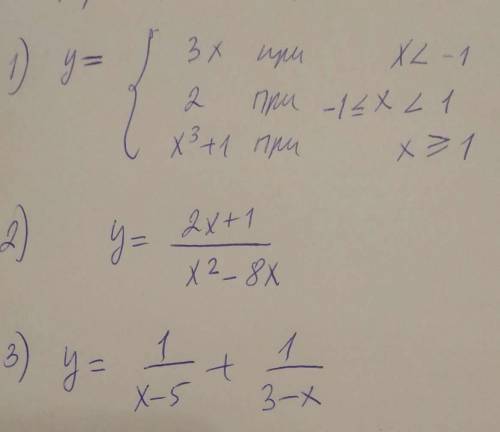 1) y = { 3x при x < -1
2 при -1 ≤ x < 1
x³+1 при x ≥ 1
2) y = (2x+1)/(x² - 8x)
3) y = 1/(x-5) + 1/(3-x)